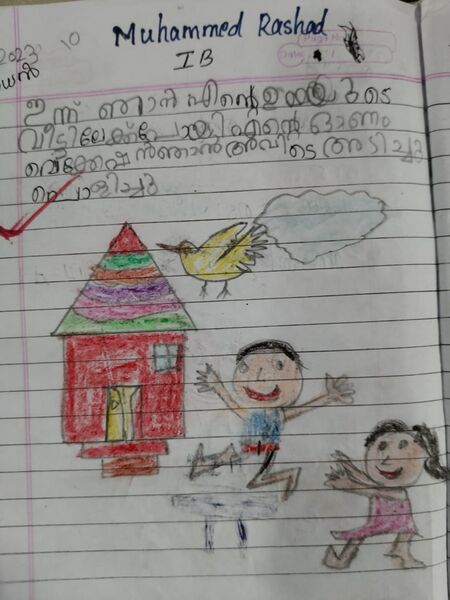 Muhammed Rashad
1B
2023
ഇന്ന് ഞാൻ എന്റെ ഉമ്മയുടെ
വീട്ടിലേക്ക് പോയി എന്റെ ഓണം
വെക്കേഷൻ ഞാൻ അവിടെ അടിച്ചു
പൊളിച്ചു